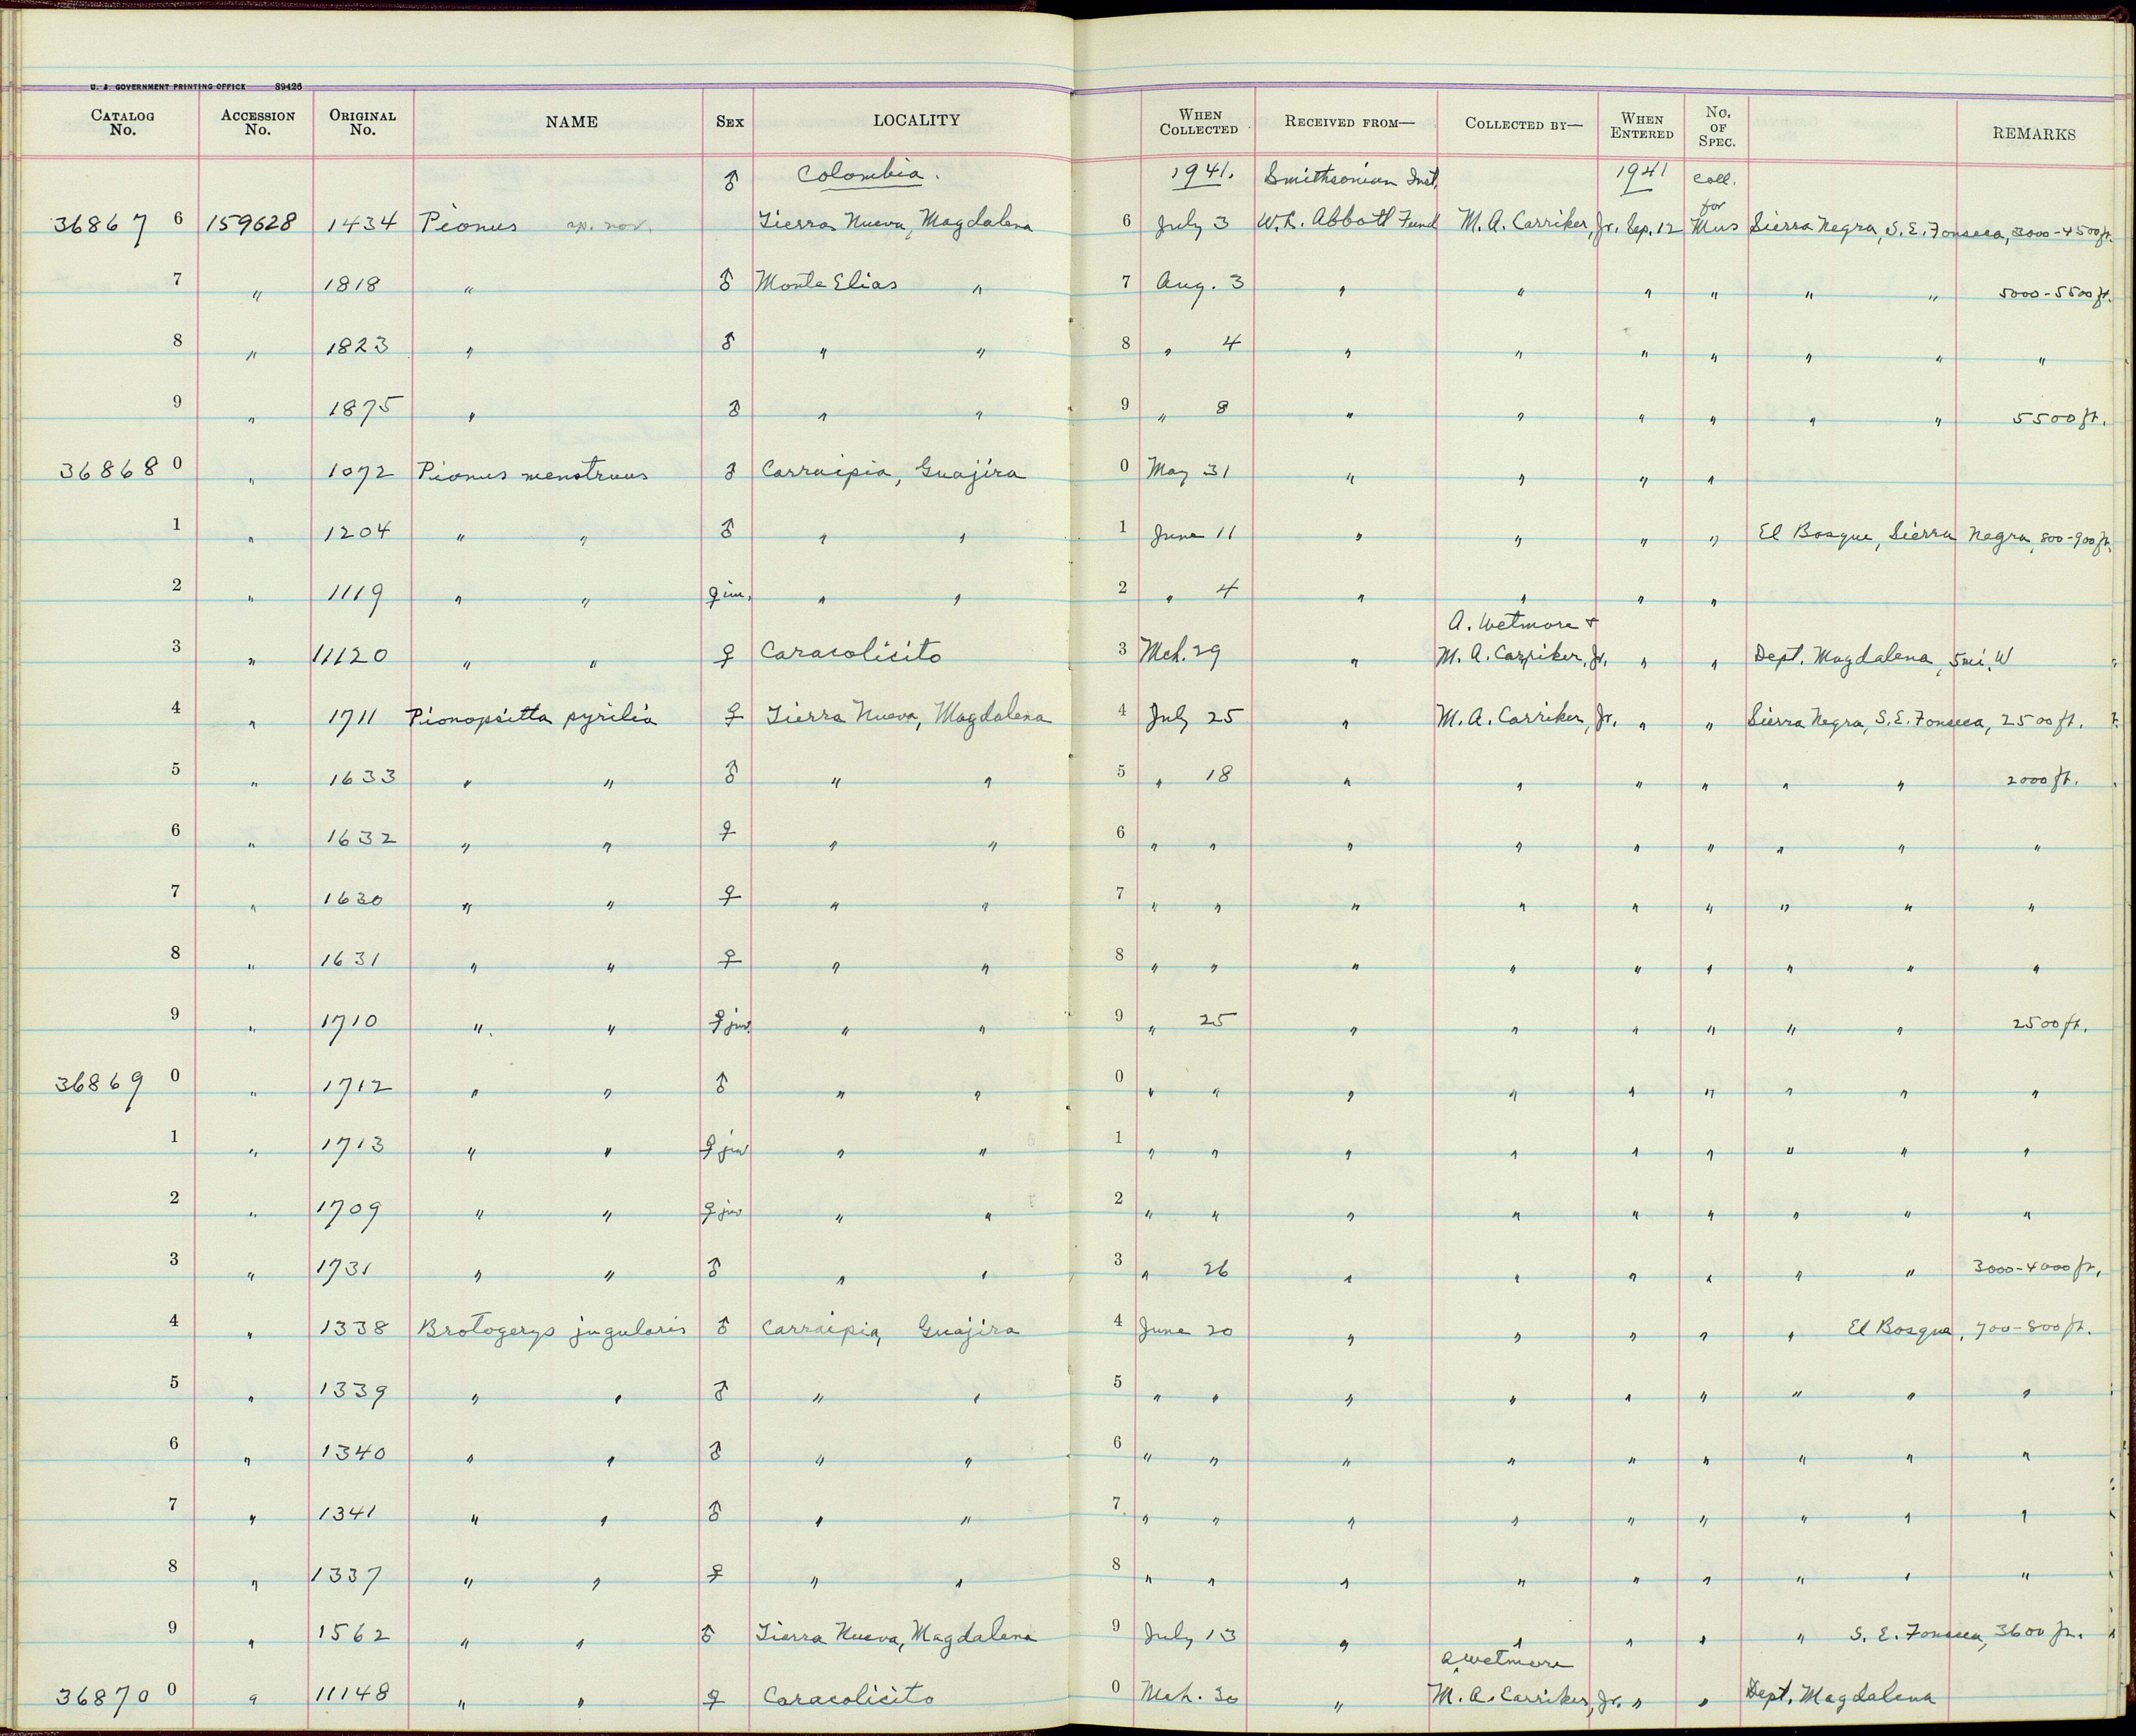 U. S. GOVERNMENT PRINTING OFFICE 89426
CATALOG No. ACCESSION No. ORIGINAL No. NAME SEX LOCALITY WHEN COLLECTED RECEIVED FROM— COLLECTED BY— WHEN ENTERED No. OF SPEC. REMARKS
♂ Colombia. 1941. Smithsonian Inst. 1941 coll. for
36867 6 159628 1434 Pionus sp. nov. Tierra Nueva, Magdalena 6 July 3 W.L. Abbott Fund M. A. Carriker, Jr. Sep. 12 Mus Sierra Negra, S. E. Fonseca, 3000-4500 ft.
7 " 1818 " ♂ Monte Elias " 7 Aug. 3 " " " " " " 5000-5500 ft.
8 " 1823 " ♂ " " 8 " 4 " " " " " " "
9 " 1875 " ♂ " " 9 " 8 " " " " " " 5500 ft.
36868 0 " 1072 Pionus menstruus ♂ Carraipia, Guajira 0 May 31 " " " "
1 " 1204 " " ♂ " " 1 June 11 " " " " El Bosque, Sierra Negra, 800-900 ft.
2 " 1119 " " ♀ im. " " 2 " 4 " " " "
A. Wetmore &
3 " 11120 " " ♀ Caracolicito 3 Mch. 29 " M. A. Carriker, Jr. " " Dept. Magdalena, 5 mi. W
4 " 1711 Pionopsitta pyrilia ♀ Tierra Nueva, Magdalena 4 July 25 " M. A. Carriker, Jr. " " Sierra Negra, S. E. Fonseca, 2500 ft.
5 " 1633 " " ♂ " " 5 " 18 " " " " " " 2000 ft.
6 " 1632 " " ♀ " " 6 " " " " " " " " "
7 " 1630 " " ♀ " " 7 " " " " " " " " "
8 " 1631 " " ♀ " " 8 " " " " " " " " "
9 " 1710 " " ♀ juv. " " 9 " 25 " " " " " " 2500 ft.
36869 0 " 1712 " " ♂ " " 0 " " " " " " " " "
1 " 1713 " " ♀ juv " " 1 " " " " " " " " "
2 " 1709 " " ♀ juv " " 2 " " " " " " " " "
3 " 1731 " " ♂ " " 3 " 26 " " " " " " 3000-4000 ft.
4 " 1338 Brotogerys jugularis ♂ Carraipia, Guajira 4 June 20 " " " " " El Bosque, 700-800 ft.
5 " 1339 " " ♂ " " 5 " " " " " " " " "
6 " 1340 " " ♂ " " 6 " " " " " " " " "
7 " 1341 " " ♂ " " 7 " " " " " " " " "
8 " 1337 " " ♀ " " 8 " " " " " " " " "
9 " 1562 " " ♂ Tierra Nueva, Magdalena 9 July 13 " " " " " S. E. Fonseca, 3600 ft.
A Wetmore
36870 0 " 11148 " " ♀ Caracolicito 0 Mch. 30 " M. A. Carriker, Jr. " " Dept. Magdalena